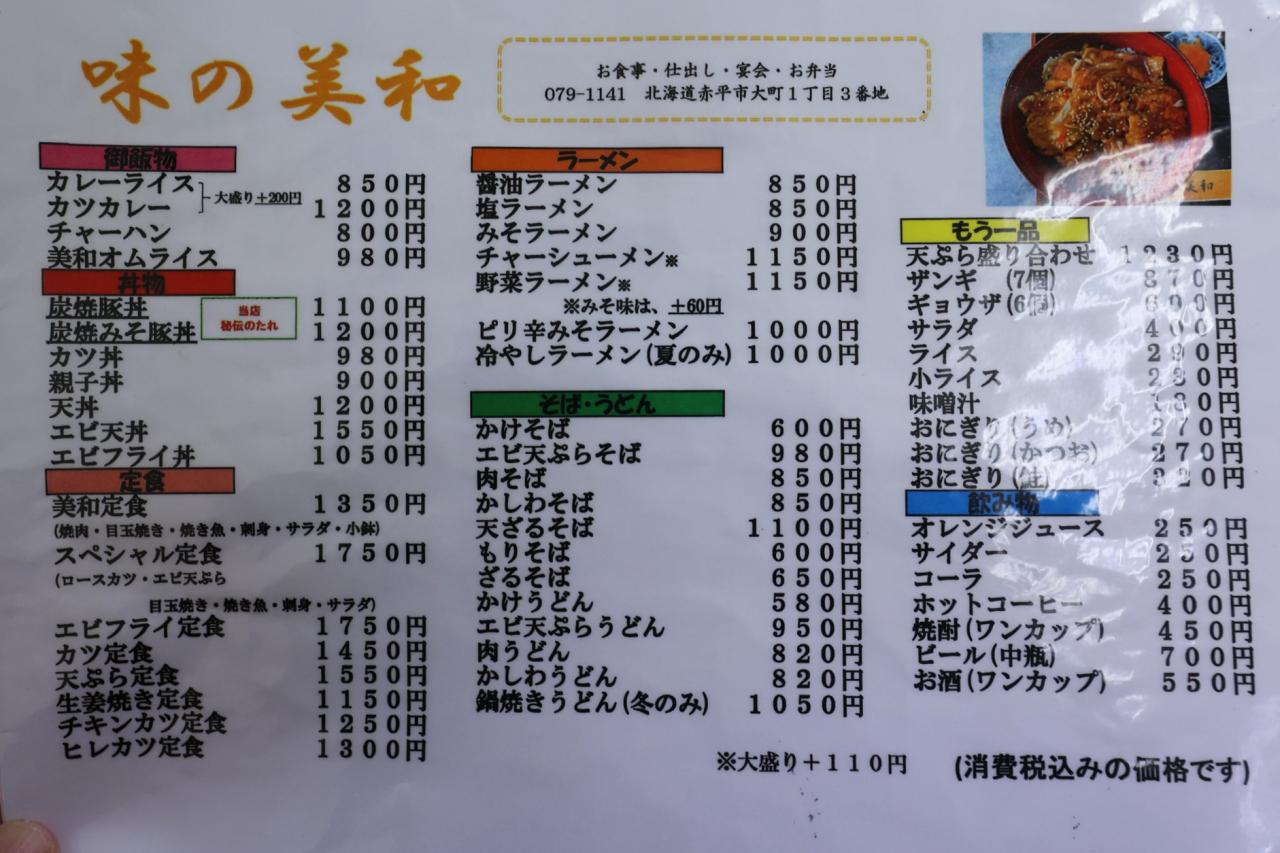 味の美和
お食事・仕出し・宴会・お弁当
079-1141 北海道赤平市大町1丁目3番地
御飯物
カレーライス 850円
カツカレー 1200円
大盛り+200円
チャーハン 800円
美和オムライス 980円
丼物
炭焼豚丼 1100円
炭焼みそ豚丼 1200円
当店
秘伝のたれ
カツ丼 980円
親子丼 900円
天丼 1200円
エビ天丼 1550円
エビフライ丼 1050円
定食
美和定食 1350円
(焼肉・目玉焼き・焼き魚・刺身・サラダ・小鉢)
スペシャル定食 1750円
(ロースカツ・エビ天ぷら
目玉焼き・焼き魚・刺身・サラダ)
エビフライ定食 1750円
カツ定食 1450円
天ぷら定食 1550円
生姜焼き定食 1150円
チキンカツ定食 1250円
ヒレカツ定食 1300円
ラーメン
醤油ラーメン 850円
塩ラーメン 850円
みそラーメン 900円
チャーシューメン※ 1150円
野菜ラーメン※ 1150円
※みそ味は、+60円
ピリ辛みそラーメン 1000円
冷やしラーメン(夏のみ) 1000円
そば・うどん
かけそば 600円
エビ天ぷらそば 980円
肉そば 850円
かしわそば 850円
天ざるそば 1100円
もりそば 600円
ざるそば 650円
かけうどん 580円
エビ天ぷらうどん 950円
肉うどん 820円
かしわうどん 820円
鍋焼きうどん(冬のみ) 1050円
※大盛り+110円
美和
もう一品
天ぷら盛り合わせ 1230円
ザンギ (7個) 870円
ギョウザ(6個) 600円
サラダ 400円
ライス 290円
小ライス 230円
味噌汁 180円
おにぎり(うめ) 270円
おにぎり(かつお) 270円
おにぎり(鮭) 320円
飲み物
オレンジジュース 250円
サイダー 250円
コーラ 250円
ホットコーヒー 400円
焼酎(ワンカップ) 450円
ビール(中瓶) 700円
お酒(ワンカップ) 550円
(消費税込みの価格です)